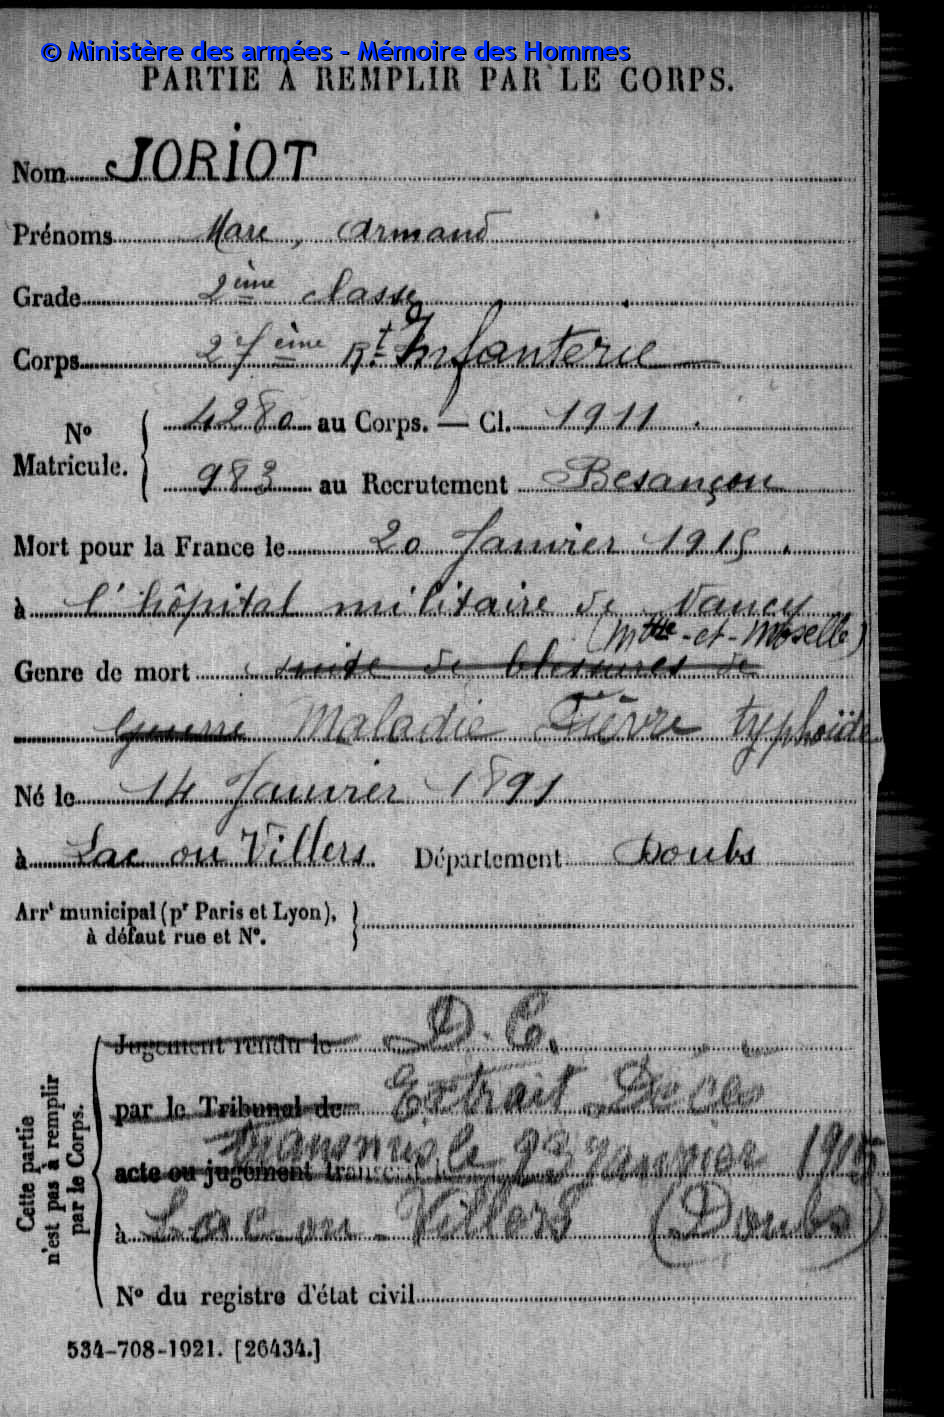 © Ministère des armées - Mémoire des Hommes
PARTIE À REMPLIR PAR LE CORPS.
Nom JORIOT
Prénoms Marc, Armand
Grade 2ème classe
Corps 27ème Rt Infanterie
N° Matricule. 4280 au Corps. — Cl. 1911.
983 au Recrutement Besançon
Mort pour la France le 20 Janvier 1915.
à l'hôpital militaire de Nancy
(Mthe-et-Moselle)
Genre de mort suite de blessures de
guerre Maladie Fièvre typhoïde
Né le 14 Janvier 1891
à Lac ou Villers Département Doubs
Arrt municipal (pr Paris et Lyon),
à défaut rue et N°.
Cette partie
n'est pas à remplir
par le Corps.
Jugement rendu le D. C.
par le Tribunal de Extrait Décès
transmis le 23 Janvier 1915
acte ou jugement transcrit le
à Lac ou Villers (Doubs)
N° du registre d'état civil
534-708-1921. [26434.]